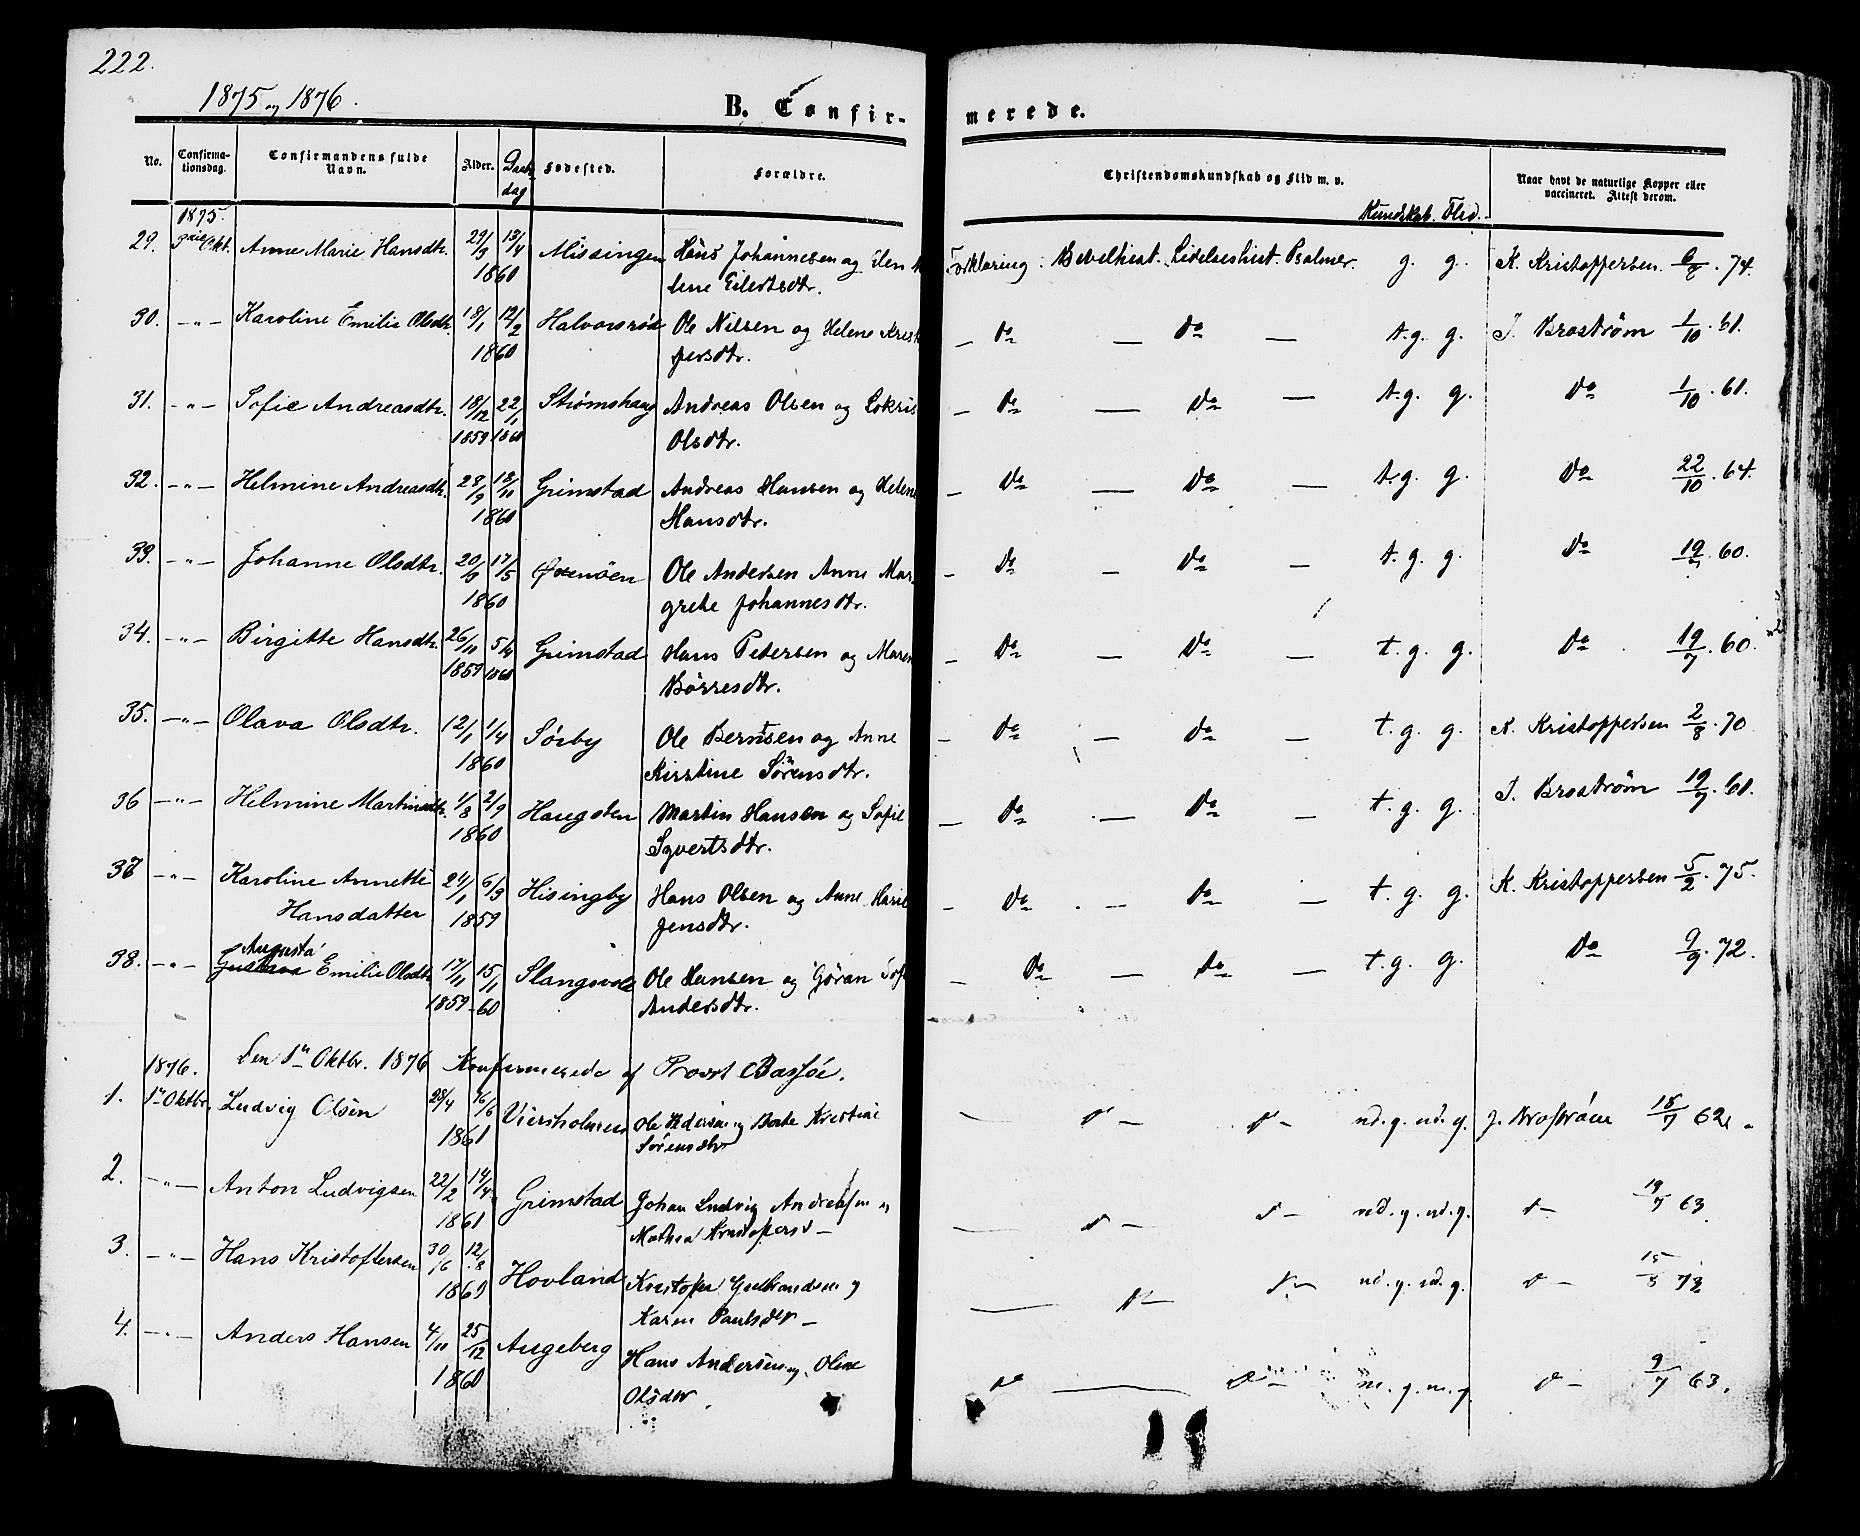 222.
1875 og 1876.
B. Confirmerede.
No. Confirmationsdag. Confirmandens fulde Navn. Alder. Daabdag Fødested. Forældre. Christendomskundskab og Flid m. v. Naar havt de naturlige Kopper eller vaccineret. Attest derom.
Kundskab. Flid.
1875.
29. 3die Okt. Anne Marie Hansdtr. 29/3 13/4 Missingen Hans Johannesen og Forklaring. Bibelhist. Lidelseshist. Psalmer. g. g. K. Kristoffersen. 74.
1860 lene Eilertsdtr.
30. -"- Karoline Emilie Olsdtr. 18/1 12/2 Halvorsrød Ole Nilsen og Helene Krist — do — do — t.g. g. J. Broström 1/10. 61.
1860 persdtr.
31. -"- Sofie Andreasdtr. 18/12 22/1 Strømshaug Andreas Olsen og Lokris — do — do — t.g. g. do 1/10. 61.
1859 1860 Olsdtr.
32. -"- Helmine Andreasdtr. 28/9 18/11 Grimstad Andreas Hansen og Helene — do — do — t.g. g. do 22/10. 64.
1860 Hansdtr.
33. -"- Johanne Olsdtr. 17/5 Ole Andersen Anne Mar- — do — do — t.g. g. do 19/7. 60.
1860 grete Johannesdtr.
34. -"- Birgitte Hansdtr. 26/11 5/4 Grimstad Hans Petersen og Maren — do — do — t.g. g. do 19/7. 60.
1859 1860 Børresdtr.
35. -"- Olava Olsdtr. 12/1 1/4 Sørby Ole Berntsen og Anne — do — do — t.g. g. K. Kristoffersen 2/8. 70
1860 Kirstine Sørensdtr.
36 -"- Helmine Martinsdtr. 1/8 2/9 Haugsten Martin Hansen og Sofie — do — do — t.g. g. J. Broström 19/7. 61.
1860 Syvertsdtr.
37 -"- Karoline Annette 24/1 6/3 Hisingby Hans Olsen og Anne Marie — do — do — t.g. g. K. Kristoffersen 5/2. 75.
Hansdatter 1859 Jensdtr.
Augusta
38. -"- Gustava Emilie Olsdtr 17/11 15/1 Slangsvold Ole Hansen og Gøran Sof — do — do — t.g. g. do 9/9. 72.
1859 -60 Andersdtr.
1876. Den 1ste Oktbr. 1876 Konfirmerede af Provst Bassøe.
1. 1ste Oktbr. Ludvig Olsen 28/4 16/6 Viersholmen Ole Pedersen og Berte Kristine — d — d — md. g. md. g. J. Broström 18/7 62.
1861 Sørensdtr
2. -"- Anton Ludvigsen 22/2 14/4 Grimstad Johan Ludvig Andreasen og — d — d — md. g. md. g. d — 19/7 63.
1861 Mathea Kristofersd —
3. -"- Hans Kristoffersen 30/6 12/8 Hovland Kristofer Gulbrandsen og — d — d — md. g. md. g. d —
1860 Karen Paulsdtr —
4. -"- Anders Hansen 4/11 25/12 Augeberg Hans Andersen og Oline do — d — m. g. m. g. d — 9/7 63.
1860 Olsdtr.